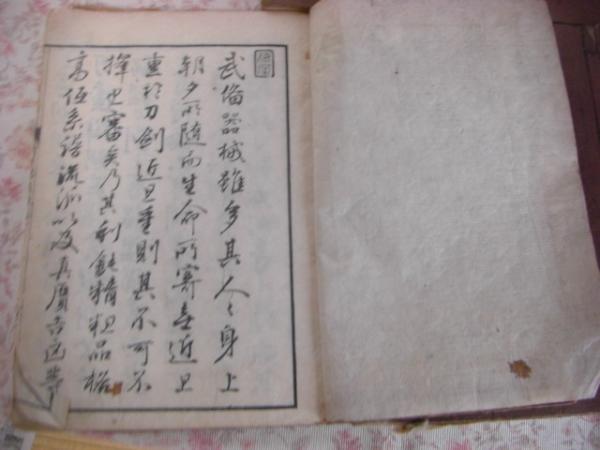 武備器械雖多其人々身上
朝夕所隨而生命所寄者近且
重於刀劍近且重則其不可不
擇也審矣乃其利鈍精粗品格
高低系譜流派以及真贋吉凶等